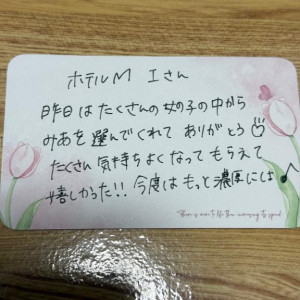 ホテルM Iさん
昨日はたくさんの女の子の中から
みあを選んでくれて ありがとう
たくさん気持ちよくなってもらえて
嬉しかった!! 今度はもっと濃厚にはい♪